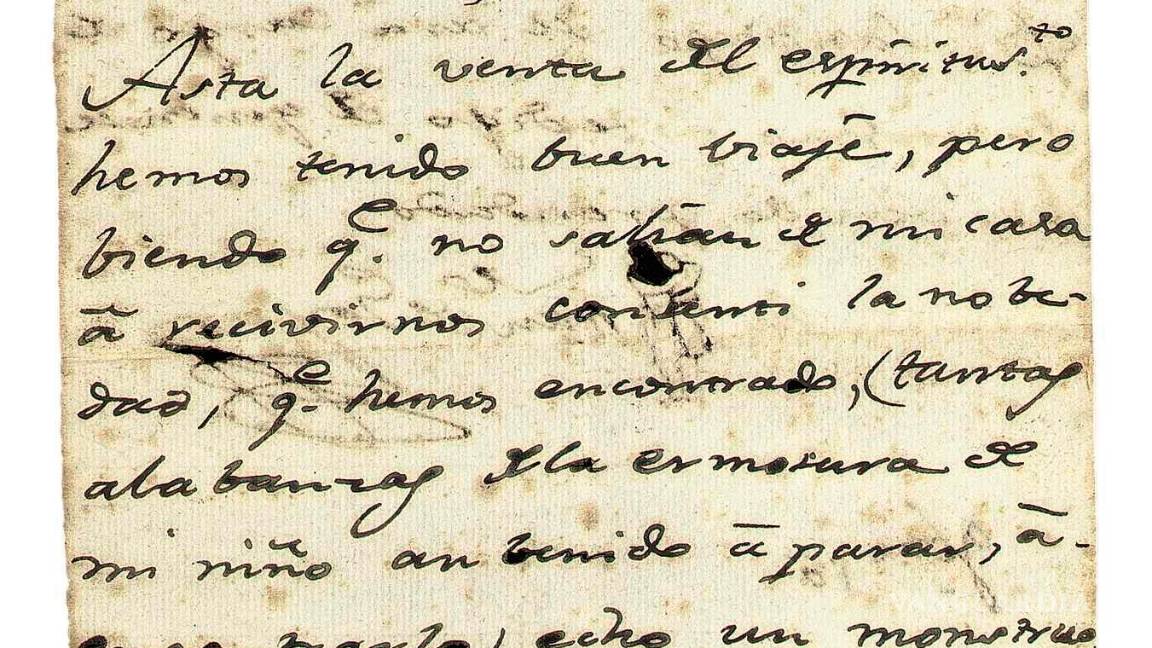 Asta la venta del espiritus.to
hemos tenido buen biaje, pero
biendo q.e no salian de mi casa
ā recivirnos consenti la nobe-
dad, q.e hemos encontrado, (tantas
alabanzas dela ermosura de
mi niño an benido ā parar, ā-
echo un monstruo